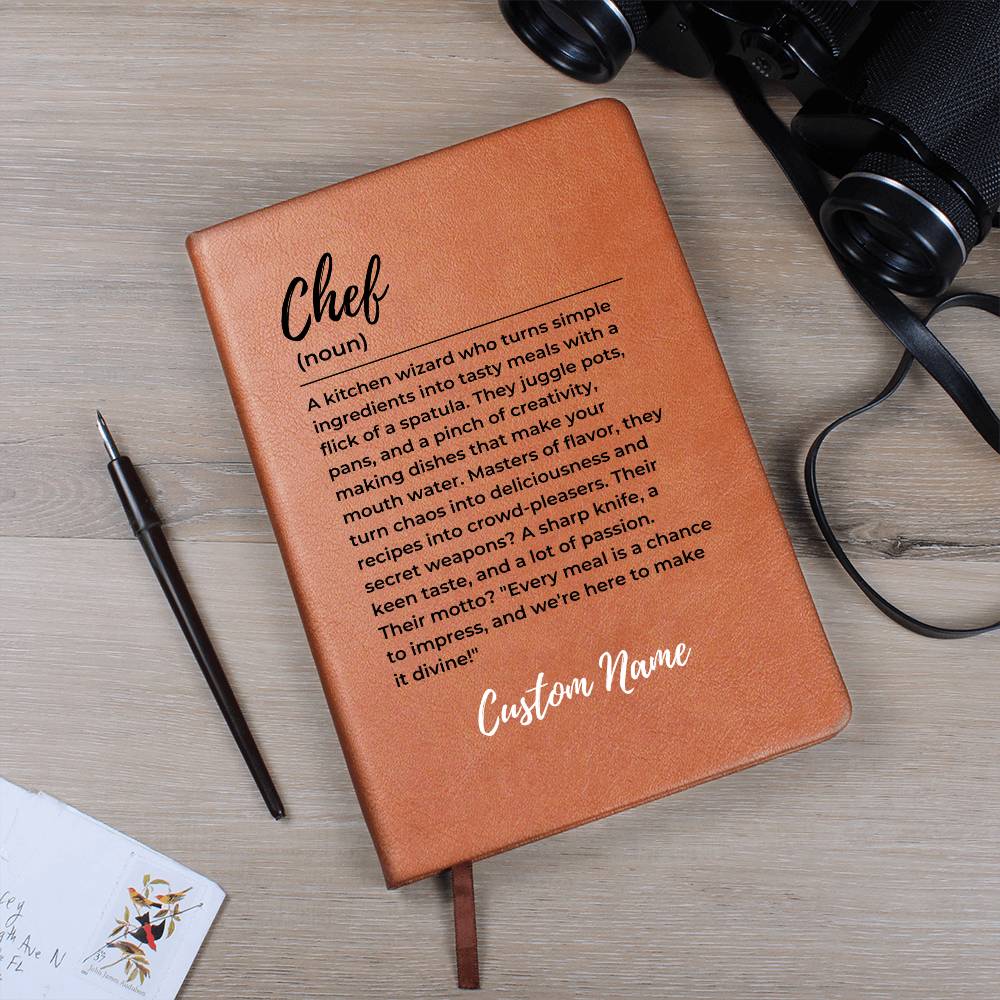 Chef
(noun)
A kitchen wizard who turns simple
ingredients into tasty meals with a
flick of a spatula. They juggle pots,
pans, and a pinch of creativity,
making dishes that make your
mouth water. Masters of flavor, they
turn chaos into deliciousness and
recipes into crowd-pleasers. Their
secret weapons? A sharp knife, a
keen taste, and a lot of passion.
Their motto? "Every meal is a chance
to impress, and we're here to make
it divine!"
Custom Name
Ave N
FL
37
John James Audubon